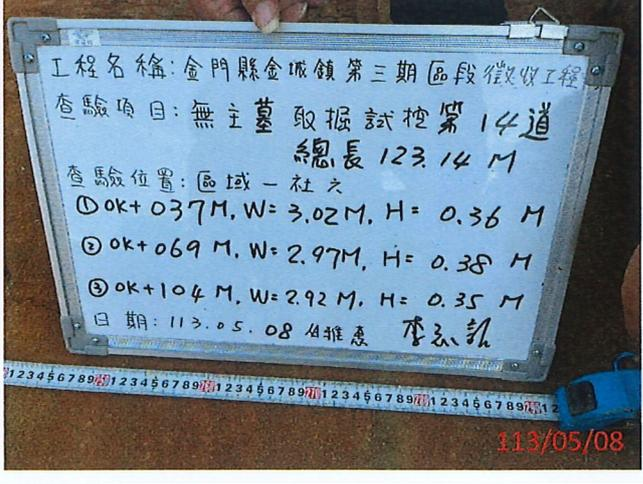 工程名稱:金門縣金城鎮第三期區段徵收工程
查驗項目:無主墓 取掘試挖第14道
總長 123.14 M
查驗位置:區域一社六
①0K+037M, W=3.02M, H= 0.36 M
②0K+069 M, W=2.97M, H= 0.38 M
③0K+104 M, W=2.92 M, H= 0.35 M
日期:113.05.08
113/05/08